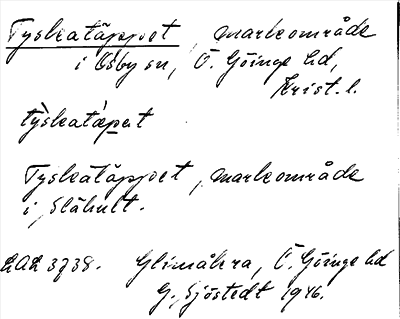 Tyskatäppet, markområde
i Osby sn, Ö. Göinge hd,
Krist. l.
tỳskatápet
Tyskatäppet, markområde
i Slähult.
LAL 3738. Glimåkra, Ö. Göinge hd
G. Sjöstedt 1946.